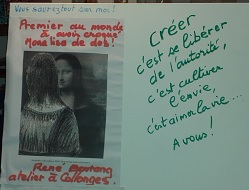 Vous souriez tous
Premier au monde
à avoir croqué
Mona lisa de dos!
René
atelier à Collonges
créer
c'est se libérer
de l'autorité,
c'est cultiver
l'envie,
c'est aimer la vie...
A vous!